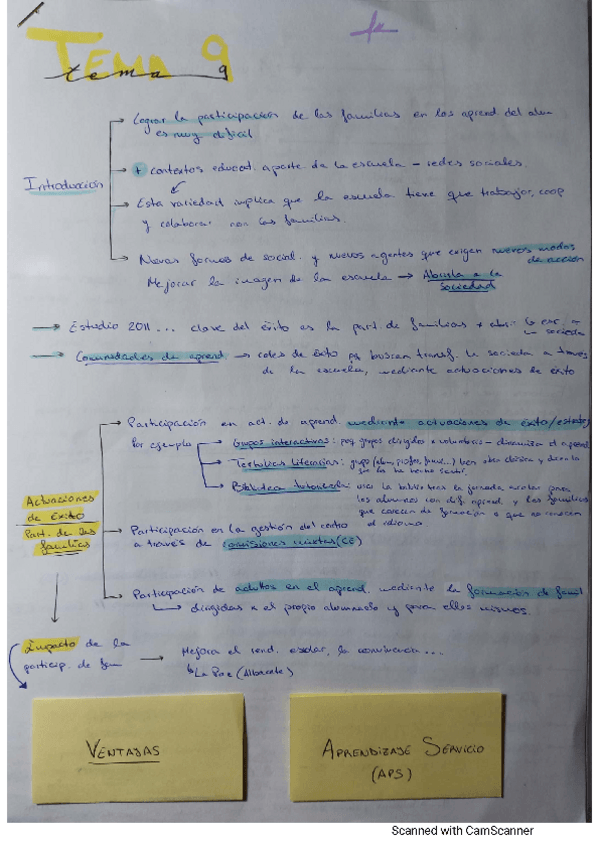 TEMA 9
tema 9
Lograr la participación de las familias en los aprend. del alum
es muy difícil
Introducción
+ contextos educat. aparte de la escuela – redes sociales.
Esta variedad implica que la escuela tiene que trabajar, coop
y colaborar con las familias.
Nuevas formas de social. y nuevos agentes que exigen nuevos modos
de acción
Mejorar la imagen de la escuela → Abierta a la
Sociedad
→ Estudio 2011 ... clave del éxito es la part. de familias
→ Comunidades de aprend → de éxito pq buscan transf. la socieda a través
de la escuela, mediante actuaciones de éxito
Participación en act. de aprend. mediante actuaciones de éxito/
Por ejemplo
Grupos interactivos: peq grupos dirigidos x voluntario – dinamiza el aprend
Tertulias literarias: grupo (alum, profes, famil...) leen obra clásica y
Biblioteca tutorizada: usar la biblioteca en jornada escolar para
los alumnos con dif. aprend y las familias
que carecen de formación o que no conocen
el idioma
Actuaciones
de éxito
Part. de las
familias
Participación en la gestión del centro
a través de comisiones mixtas (CE)
Participación de adultos en el aprend. mediante la formación de famil
→ dirigidas a el propio alumnado y para ellos mismos.
Impacto de la
particip. de fam
→ Mejora el rend. escolar, la convivencia ...
↳ La Paz (Albacete)
VENTAJAS
APRENDIZAJE SERVICIO
(APS)
Scanned with CamScanner